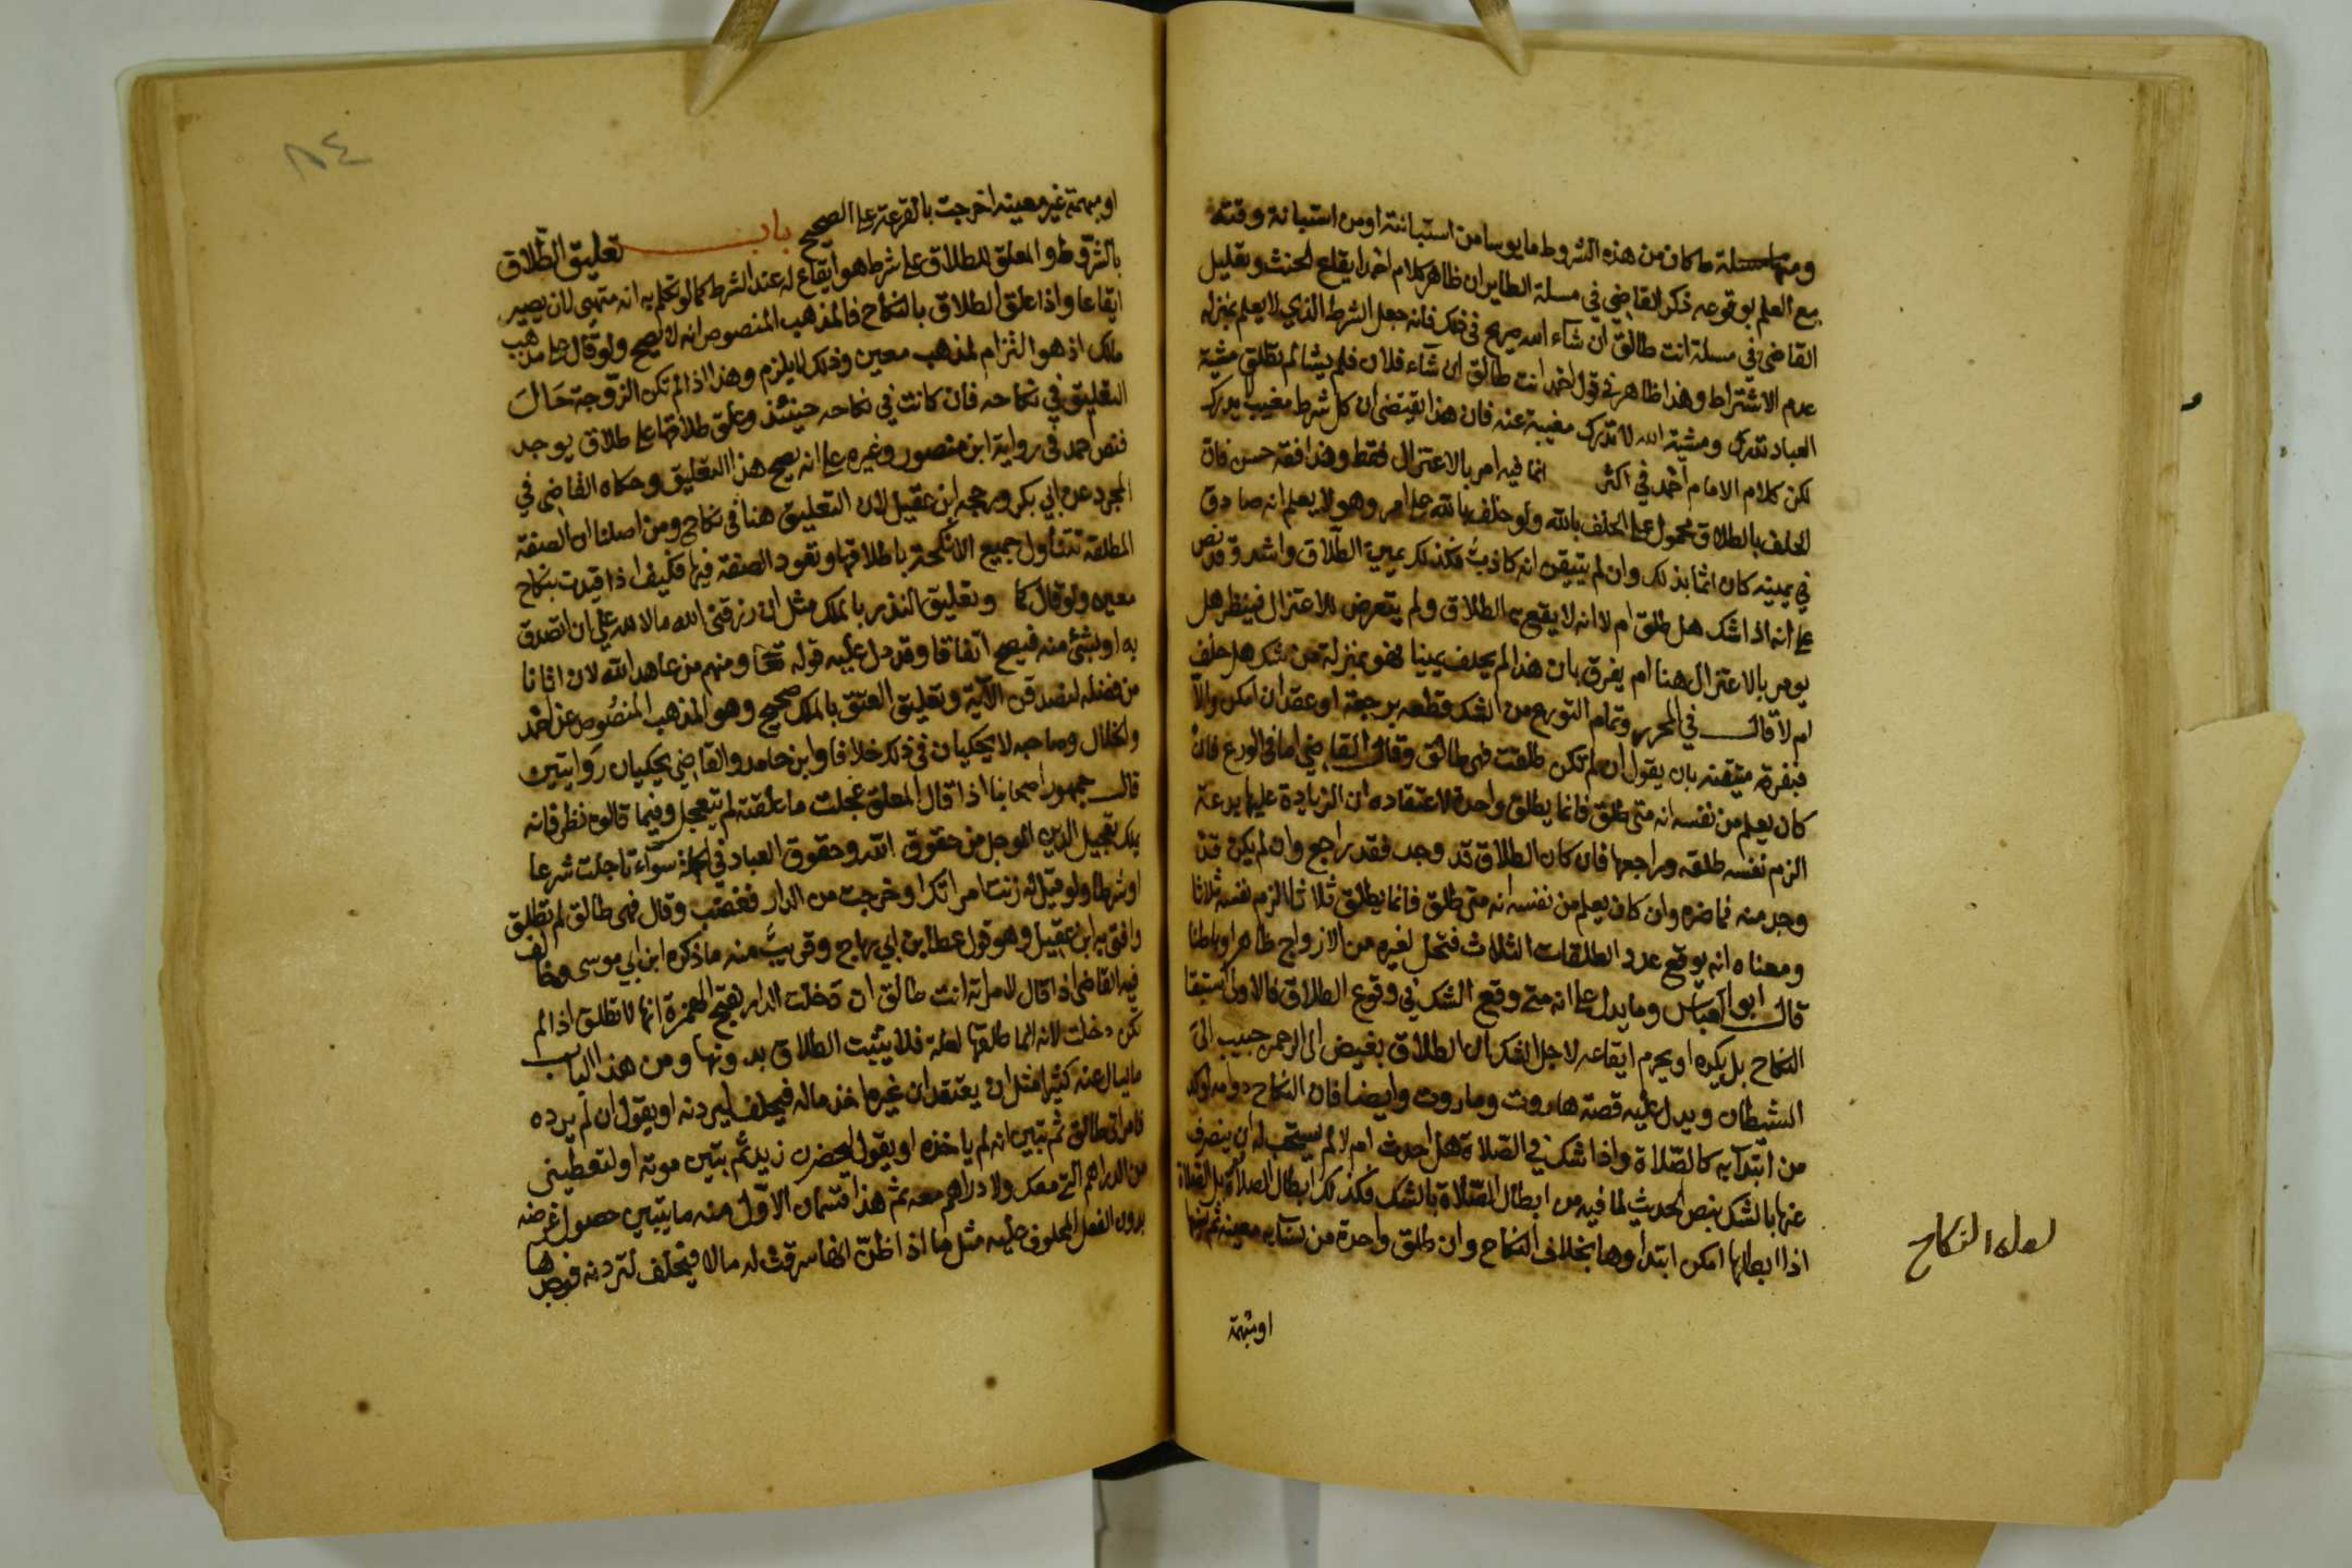 ومنها مسلة ما كان من هذه الشروط مايوسا من استبانته اومن استبانة وقته
مع العلم بوقوعه ذكر القاضي في مسلة الطاير ان ظاهر كلام احمد ايقاع الحنث وتعليل
القاضي في مسلة انت طالق ان شاء الله صريح في ذلك فانه جعل الشرط الذي لا يعلم بمنزلة
عدم الاشتراط وهذا ظاهر في قول احمد انت طالق ان شاء فلان فلم يشا لم تطلق مشية
العباد تدرك ومشية الله لا تدرك مغيبة عنه فان هذا يقتضي ان كل شرط مغيب لا يدرك
لكن كلام الامام احمد في اكثر انما فيه امر بالاعتزال فقط وهذا فقه حسن فان
الحلف بالطلاق محمول على الحلف بالله ولو حلف بالله على امر وهو لا يعلم انه صادق
في يمينه كان اثما بذلك وان لم يتيقن انه كاذب فكذلك يمين الطلاق واشد وقد نص
على انه اذا شك هل طلق ام لا انه لا يقع به الطلاق ولم يتعرض للاعتزال فينظر هل
يومر بالاعتزال هنا ام يفرق بان هذا لم يحلف يمينا فهو بمنزلة من شك هل حلف
ام لا قال في المحرر وتمام التورع من الشك قطعه برجعة او عقد ان امكن والا
فبفرقة متيقنة بان يقول ان لم تكن طلقت فهي طالق وقال القاضي اما في الورع فان
كان يعلم من نفسه انه متى طلق فانما يطلق واحدة لاعتقاده ان الزيادة عليها بدعة
الزم نفسه طلقه وراجعها فان كان الطلاق قد وجد فقد راجع وان لم يكن قد
وجد منه فما ضره وان كان يعلم من نفسه انه متى طلق فانما يطلق ثلاثا الزم نفسه ثلاثا
ومعناه انه يوقع عدد الطلقات الثلاث فتحل لغيره من الازواج ظاهرا وباطنا
قال ابو العباس ومما يدل على انه متى وقع الشك في وقوع الطلاق فالاولى استبقا
النكاح بل يكره او يحرم ايقاعه لاجل الشك ان الطلاق بغيض الى الرحمن حبيب الى
الشيطان ويدل عليه قصة هاروت وماروت وايضا فان النكاح دوامه اوكد
من ابتدآيه كالصلاة واذا شك في الصلاة هل احدث ام لا لم يستحب له ان ينصرف
عنها بالشك بنص الحديث لما فيه من ابطال الصلاة بالشك فكذلك ابطال الصلاة بل الصلاة
اذا ابطلها امكن ابتداوها بخلاف النكاح وان طلق واحدة من نسآيه معينة ثم نسيها
لعله النكاح
او مبهمة
٨٤
او مبهمة غير معينه اخرجت بالقرعة على الصحيح باب تعليق الطلاق
بالشروط والمعلق للطلاق على شرط هو ايقاع له عند الشرط كما لو تكلم به انه متهيي لان يصير
ايقاعا واذا علق الطلاق بالنكاح فالمذهب المنصوص انه لا يصح ولو قال على مذهب
ملك اذ هو التزام لمذهب معين وذلك لا يلزم وهذا اذا لم تكن الزوجة حال
التعليق في نكاحه فان كانت في نكاحه حينئذ وعلق طلاقها على طلاق يوجد
فنص احمد في رواية ابن منصور وغيره على انه يصح هذا التعليق وحكاه القاضي في
المجرد عن ابي بكر ورجحه ابن عقيل لان التعليق هنا في نكاح ومن اصلنا ان الصفة
المطلقة تتناول جميع الانكحة باطلاقها وتعود الصفة فيها فكيف اذا قيدت بنكاح
معين ولو قال كما وتعليق النذر بالملك مثل ان رزقني الله مالا لله علي ان اتصدق
به او بشئ منه فيصح اتفاقا وقد دل عليه قوله تعالى ومنهم من عاهد الله لان اتانا
من فضله لنصدقن الآية وتعليق العتق بالملك صحيح وهو المذهب المنصوص عن احمد
والخلال وصاحبه لا يحكيان في ذلك خلافا وابن حامد والقاضي يحكيان روايتين
قال جمهور اصحابنا اذا قال المعلق عجلت ما علقته لم يتعجل وفيما قالوه نظر فانه
يملك تعجيل الدين الموجل من حقوق الله وحقوق العباد في الجملة سوآء تاجلت شرعا
او شرطا ولو قيل له زنت امراتك او خرجت من الدار فغضب وقال فهي طالق لم تطلق
وافتى به ابن عقيل وهو قول عطا ابن ابي رباح وقريب منه ما ذكره ابن ابي موسى وخالف
فيه القاضي اذا قال لامراته انت طالق ان دخلت الدار بفتح الهمزة انها لا تطلق اذا لم
تكن دخلت لانه انما طلقها لعلة فلا يثبت الطلاق بدونها ومن هذا الباب
ما يسال عنه كثيرا مثل ان يعتقد ان غيره اخذ ماله فيحلف ليردنه او يقول ان لم يرده
فامراتي طالق ثم تبين انه لم ياخذه او يقول ليحضرن زيد ثم يتبين موته او لتعطيني
من الدراهم التي معك ولا دراهم معه ثم هذا قسمان الاول منه ما يتبين حصول غرضه
بدون الفعل المحلوف عليه مثل ما اذا ظن انها سرقت له مالا فيحلف لتردنه فوجدها